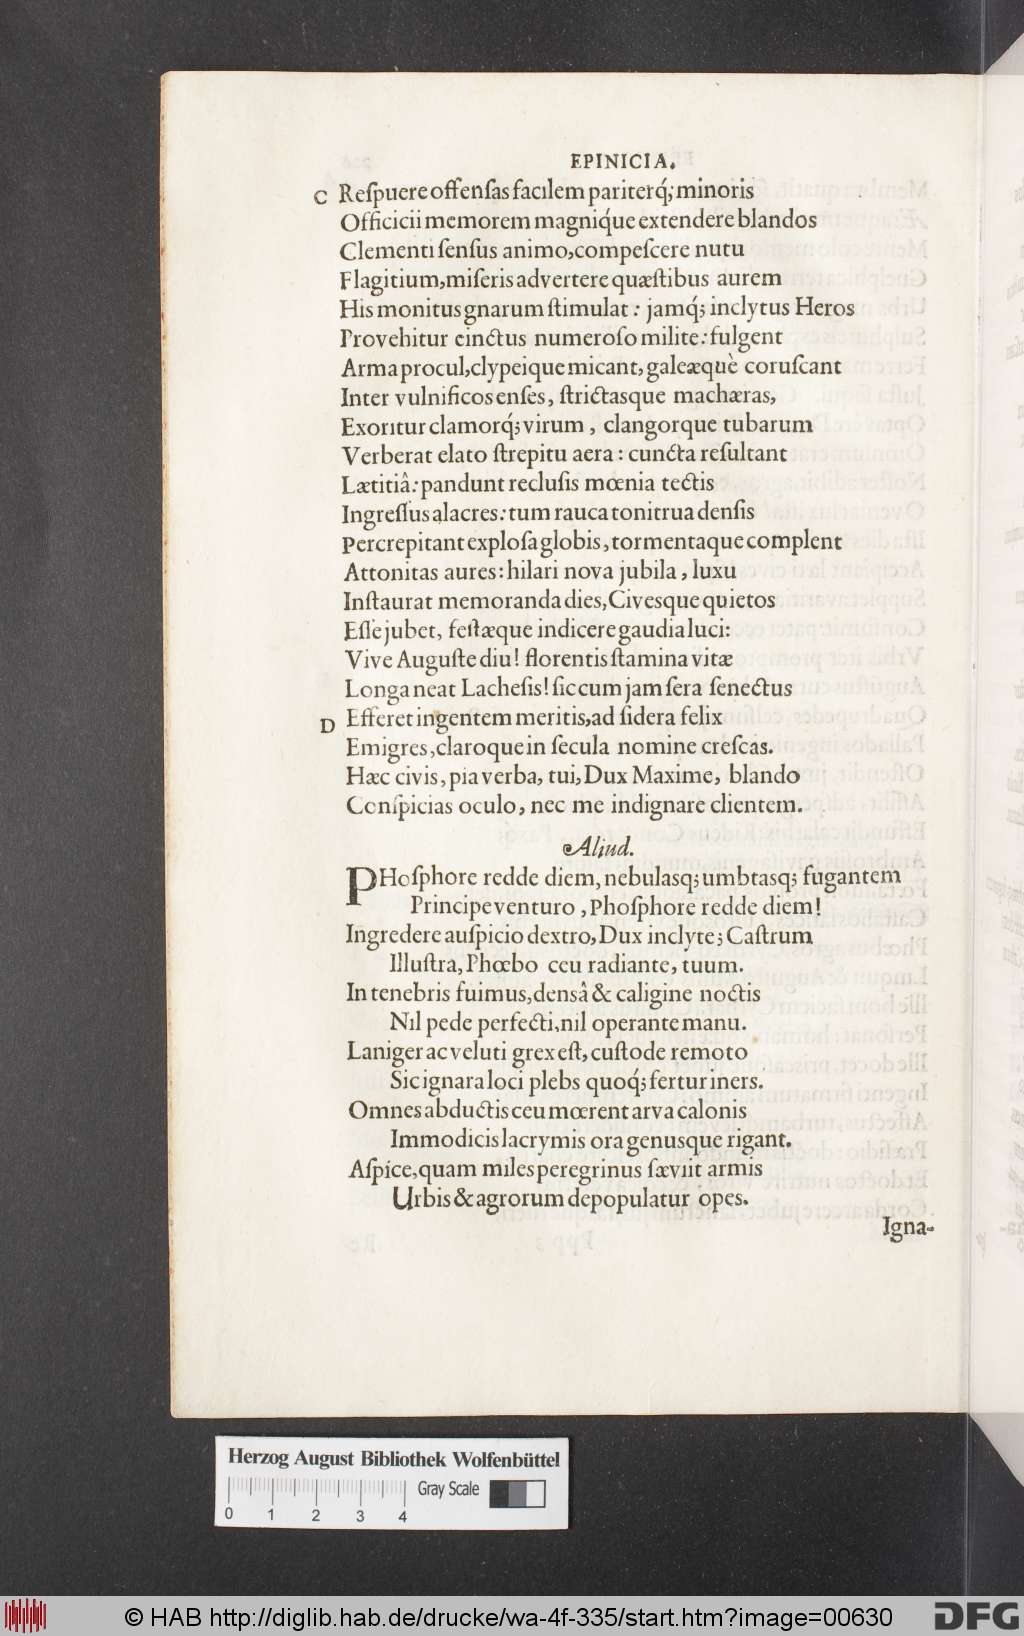 EPINICIA.
C Reſpuere offenſas facilem pariterq́; minoris
Officicii memorem magniq́ue extendere blandos
Clementi ſenſus animo, compeſcere nutu
Flagitium, miſeris advertere quæſtibus aurem
His monitus gnarum ſtimulat: jamq́; inclytus Heros
Provehitur cinctus numeroſo milite: fulgent
Arma procul, clypeique micant, galeæquè coruſcant
Inter vulnificos enſes, ſtrictasque machæras,
Exoritur clamorq́; virum, clangorque tubarum
Verberat elato ſtrepitu aera: cuncta reſultant
Lætitiâ: pandunt recluſis mœnia tectis
Ingreſſus alacres: tum rauca tonitrua denſis
Percrepitant exploſa globis, tormentaque complent
Attonitas aures: hilari nova jubila, luxu
Inſtaurat memoranda dies, Civesque quietos
Eſſe jubet, feſtæque indicere gaudia luci:
Vive Auguſte diu! florentis ſtamina vitæ
Longa neat Lacheſis! ſic cum jam ſera ſenectus
D Efferet ingentem meritis, ad ſidera felix
Emigres, claroque in ſecula nomine creſcas.
Hæc civis, pia verba, tui, Dux Maxime, blando
Conſpicias oculo, nec me indignare clientem.
Aliud.
PHoſphore redde diem, nebulasq; umbtasq; fugantem
Principe venturo, Phoſphore redde diem!
Ingredere auſpicio dextro, Dux inclyte; Caſtrum
Illuſtra, Phœbo ceu radiante, tuum.
In tenebris fuimus, densâ & caligine noctis
Nil pede perfecti, nil operante manu.
Laniger ac veluti grex eſt, cuſtode remoto
Sic ignara loci plebs quoq́; fertur iners.
Omnes abductis ceu mœrent arva calonis
Immodicis lacrymis ora genusque rigant.
Aſpice, quam miles peregrinus ſæviit armis
Urbis & agrorum depopulatur opes.
Igna-
Herzog August Bibliothek Wolfenbüttel
Gray Scale
0 1 2 3 4
© HAB http://diglib.hab.de/drucke/wa-4f-335/start.htm?image=00630
DFG